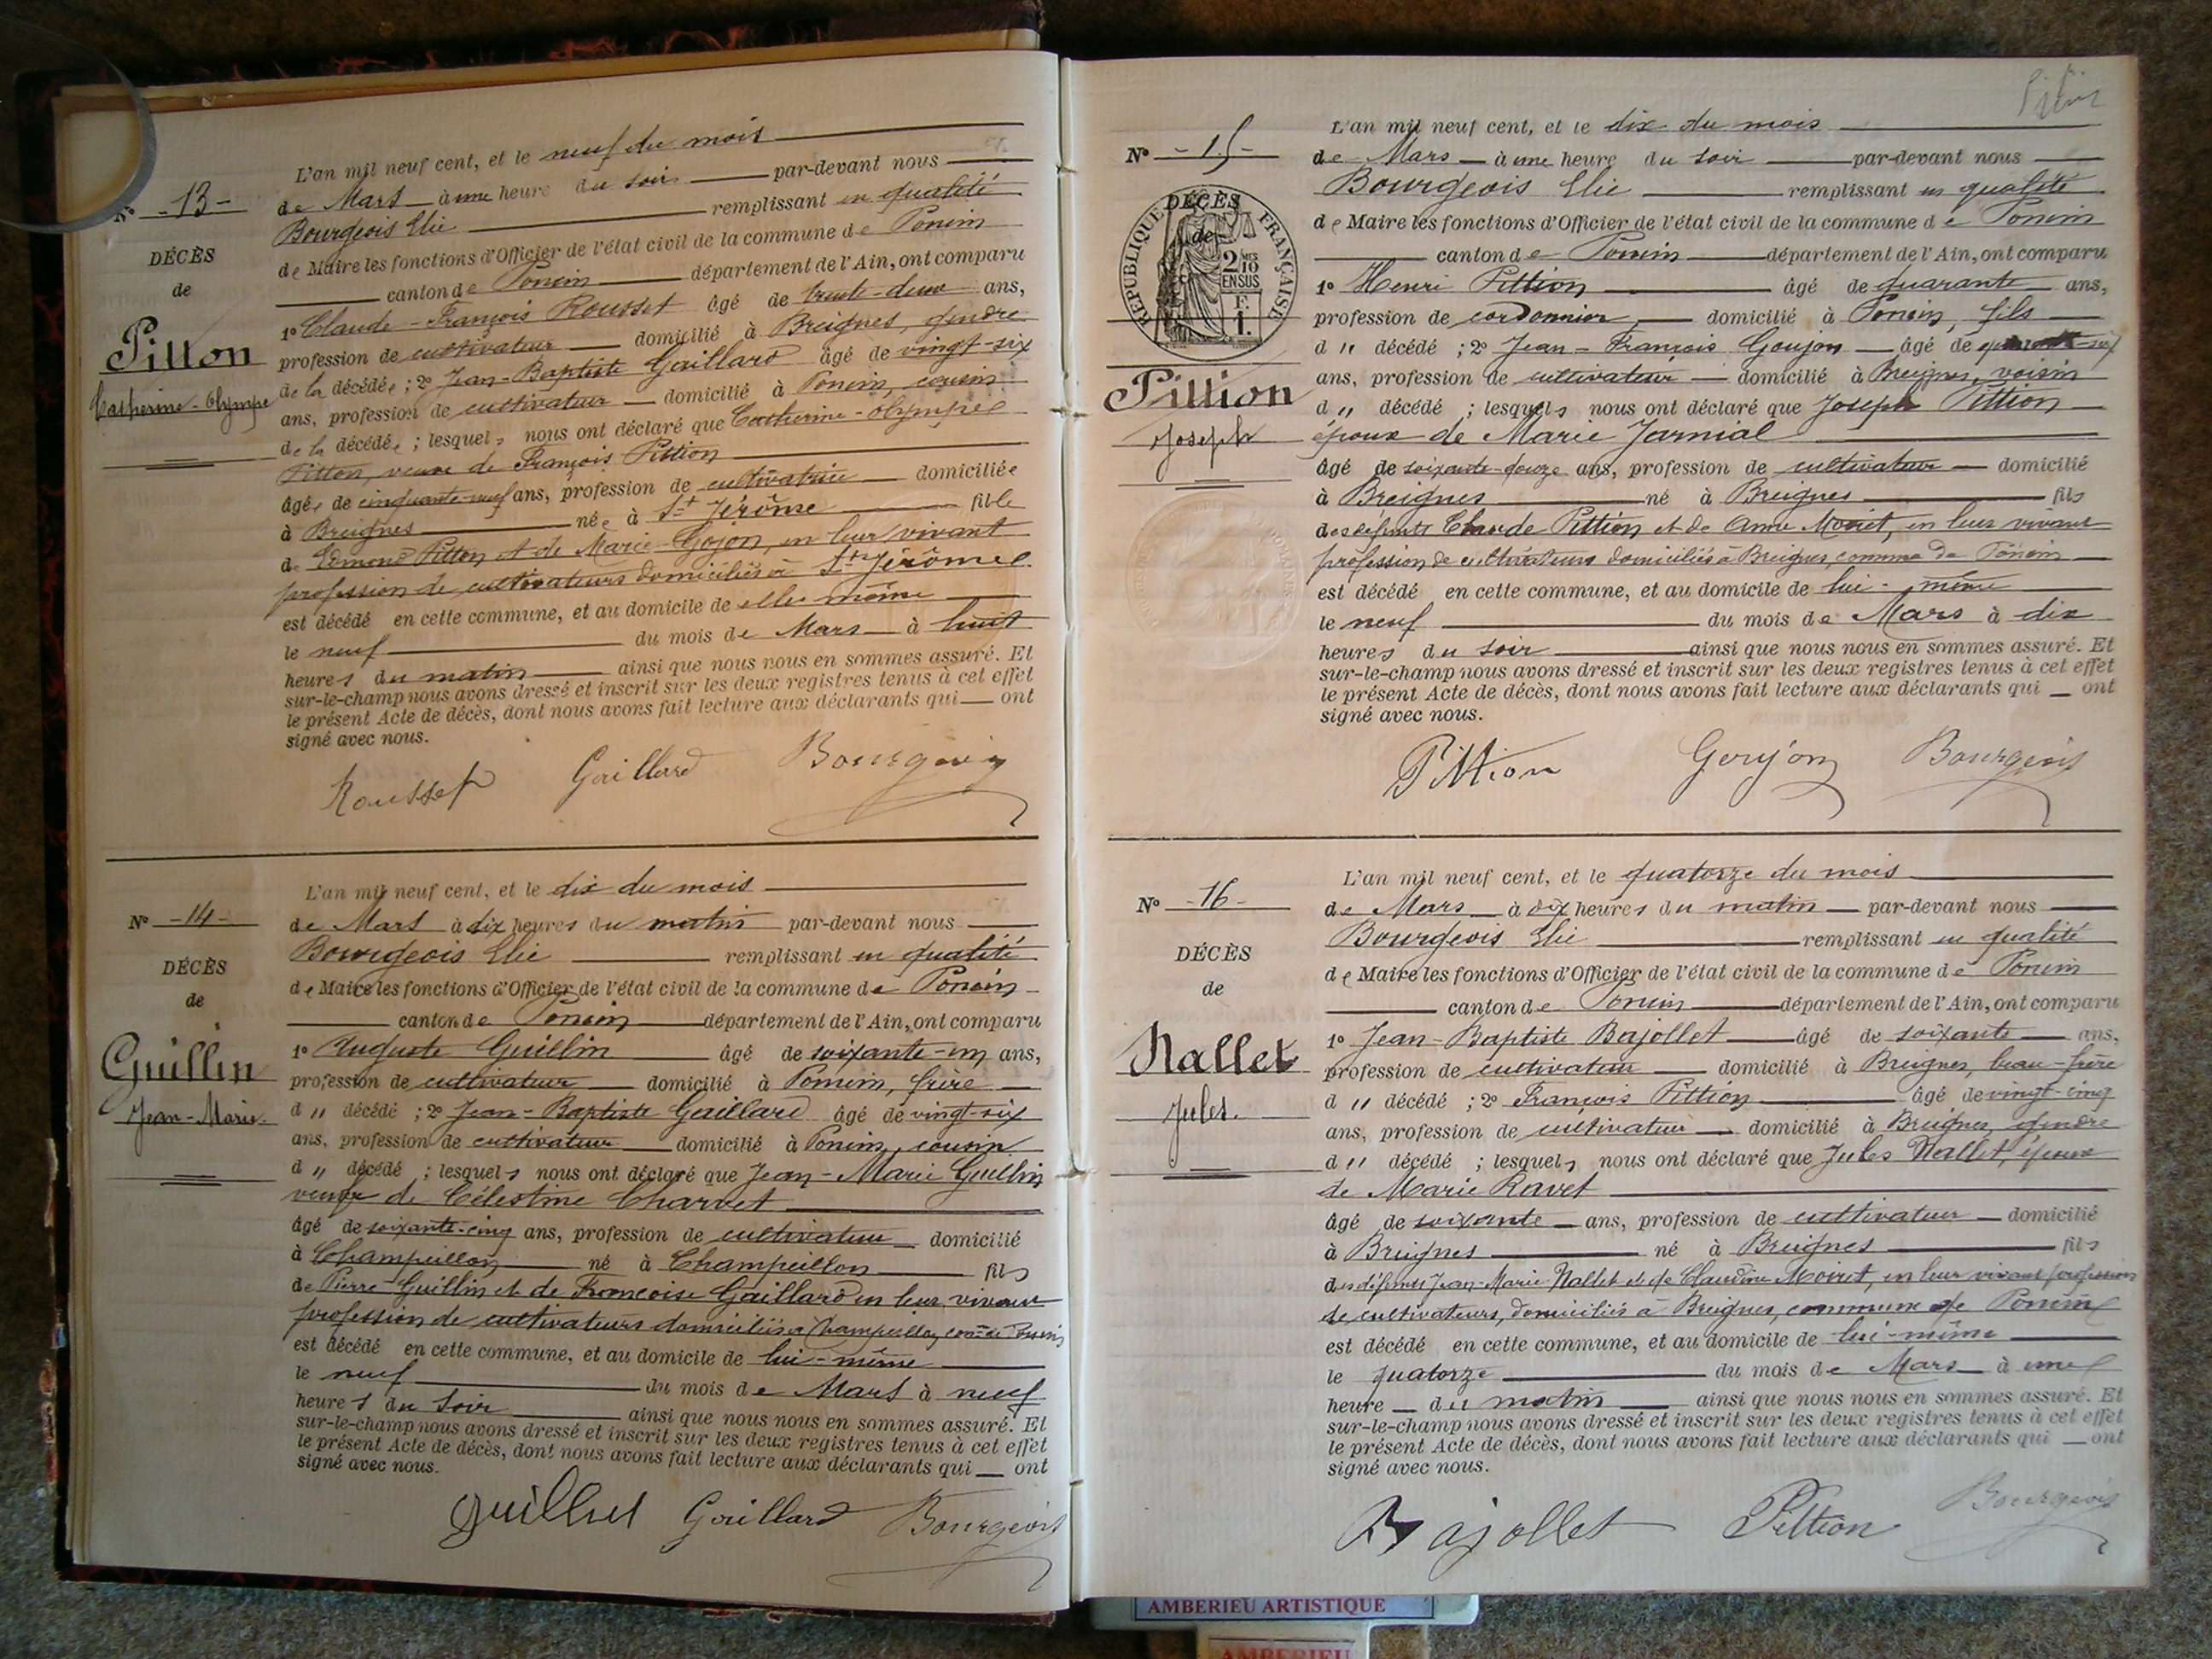 L'an mil neuf cent, et le neuf du mois
N° -13- de Mars à une heure du soir par-devant nous
Bourgeois Elie remplissant en qualité
de Maire les fonctions d'Officier de l'état civil de la commune de Poncin
canton de Poncin département de l'Ain, ont comparu
1° Claude-François Rousset âgé de trente-deux ans,
profession de cultivateur domicilié à Breignes, gendre
de la décédée ; 2° Jean-Baptiste Gaillard âgé de vingt-six
ans, profession de cultivateur domicilié à Poncin, cousin
de la décédée ; lesquels nous ont déclaré que Catherine-Olympe
Pitton, veuve de François Pittion
âgée de cinquante-neuf ans, profession de cultivatrice domiciliée
à Breignes née à St Jérôme fille
de Edmond Pitton et de Marie Gojon, en leur vivant
profession de cultivateurs domiciliés à St Jérôme
est décédé en cette commune, et au domicile de elle même
le neuf du mois de Mars à huit
heures du matin ainsi que nous nous en sommes assuré. Et
sur-le-champ nous avons dressé et inscrit sur les deux registres tenus à cet effet
le présent Acte de décès, dont nous avons fait lecture aux déclarants qui ont
signé avec nous.
DÉCÈS
de
Pitton
Catherine-Olympe
Rousset Gaillard Bourgeois
L'an mil neuf cent, et le dix du mois
N° -14- de Mars à dix heures du matin par-devant nous
Bourgeois Elie remplissant en qualité
de Maire les fonctions d'Officier de l'état civil de la commune de Poncin
canton de Poncin département de l'Ain, ont comparu
1° Auguste Guillin âgé de soixante-un ans,
profession de cultivateur domicilié à Poncin, frère
d " décédé ; 2° Jean-Baptiste Gaillard âgé de vingt-six
ans, profession de cultivateur domicilié à Poncin, cousin
d " décédé ; lesquels nous ont déclaré que Jean-Marie Guillin
veuf de Célestine Charvet
âgé de soixante-cinq ans, profession de cultivateur domicilié
à Champeillon né à Champeillon fils
de Pierre Guillin et de Françoise Gaillard en leur vivant
profession de cultivateurs domiciliés à Champeillon, cone de Poncin
est décédé en cette commune, et au domicile de lui-même
le neuf du mois de Mars à neuf
heures du soir ainsi que nous nous en sommes assuré. Et
sur-le-champ nous avons dressé et inscrit sur les deux registres tenus à cet effet
le présent Acte de décès, dont nous avons fait lecture aux déclarants qui ont
signé avec nous.
DÉCÈS
de
Guillin
Jean-Marie.
Guillin Gaillard Bourgeois
L'an mil neuf cent, et le dix du mois
N° -15- de Mars à une heure du soir par-devant nous
Bourgeois Elie remplissant en qualité
de Maire les fonctions d'Officier de l'état civil de la commune de Poncin
canton de Poncin département de l'Ain, ont comparu
1° Henri Pittion âgé de quarante ans,
profession de cordonnier domicilié à Poncin, fils
d " décédé ; 2° Jean-François Goujon âgé de
ans, profession de cultivateur domicilié à Breignes, voisin
d " décédé ; lesquels nous ont déclaré que Joseph Pittion
époux de Marie Jarnial
âgé de soixante-douze ans, profession de cultivateur domicilié
à Breignes né à Breignes fils
des défunts Claude Pittion et de Anne Moiret, en leur vivant
profession de cultivateurs domiciliés à Breignes, comme de Poncin
est décédé en cette commune, et au domicile de lui-même
le neuf du mois de Mars à dix
heures du soir ainsi que nous nous en sommes assuré. Et
sur-le-champ nous avons dressé et inscrit sur les deux registres tenus à cet effet
le présent Acte de décès, dont nous avons fait lecture aux déclarants qui ont
signé avec nous.
RÉPUBLIQUE FRANÇAISE
DÉCÈS
de
2 MES
10
EN SUS
F.
1.
Pittion
Joseph
Pittion Goujon Bourgeois
L'an mil neuf cent, et le quatorze du mois
N° -16- de Mars à dix heures du matin par-devant nous
Bourgeois Elie remplissant en qualité
de Maire les fonctions d'Officier de l'état civil de la commune de Poncin
canton de Poncin département de l'Ain, ont comparu
1° Jean-Baptiste Bajollet âgé de soixante ans,
profession de cultivateur domicilié à Breignes, beau-frère
d " décédé ; 2° François Pittion âgé de vingt-cinq
ans, profession de cultivateur domicilié à Breignes, gendre
d " décédé ; lesquels nous ont déclaré que Jules Nallet, époux
de Marie Ravet
âgé de soixante ans, profession de cultivateur domicilié
à Breignes né à Breignes fils
des défunts Jean-Marie Nallet et de Claudine Moiret, en leur vivant profession
de cultivateurs, domiciliés à Breignes, commune de Poncin
est décédé en cette commune, et au domicile de lui-même
le quatorze du mois de Mars à une
heure du matin ainsi que nous nous en sommes assuré. Et
sur-le-champ nous avons dressé et inscrit sur les deux registres tenus à cet effet
le présent Acte de décès, dont nous avons fait lecture aux déclarants qui ont
signé avec nous.
DÉCÈS
de
Nallet
Jules.
Bajollet Pittion Bourgeois
AMBERIEU ARTISTIQUE
AMBERIEU